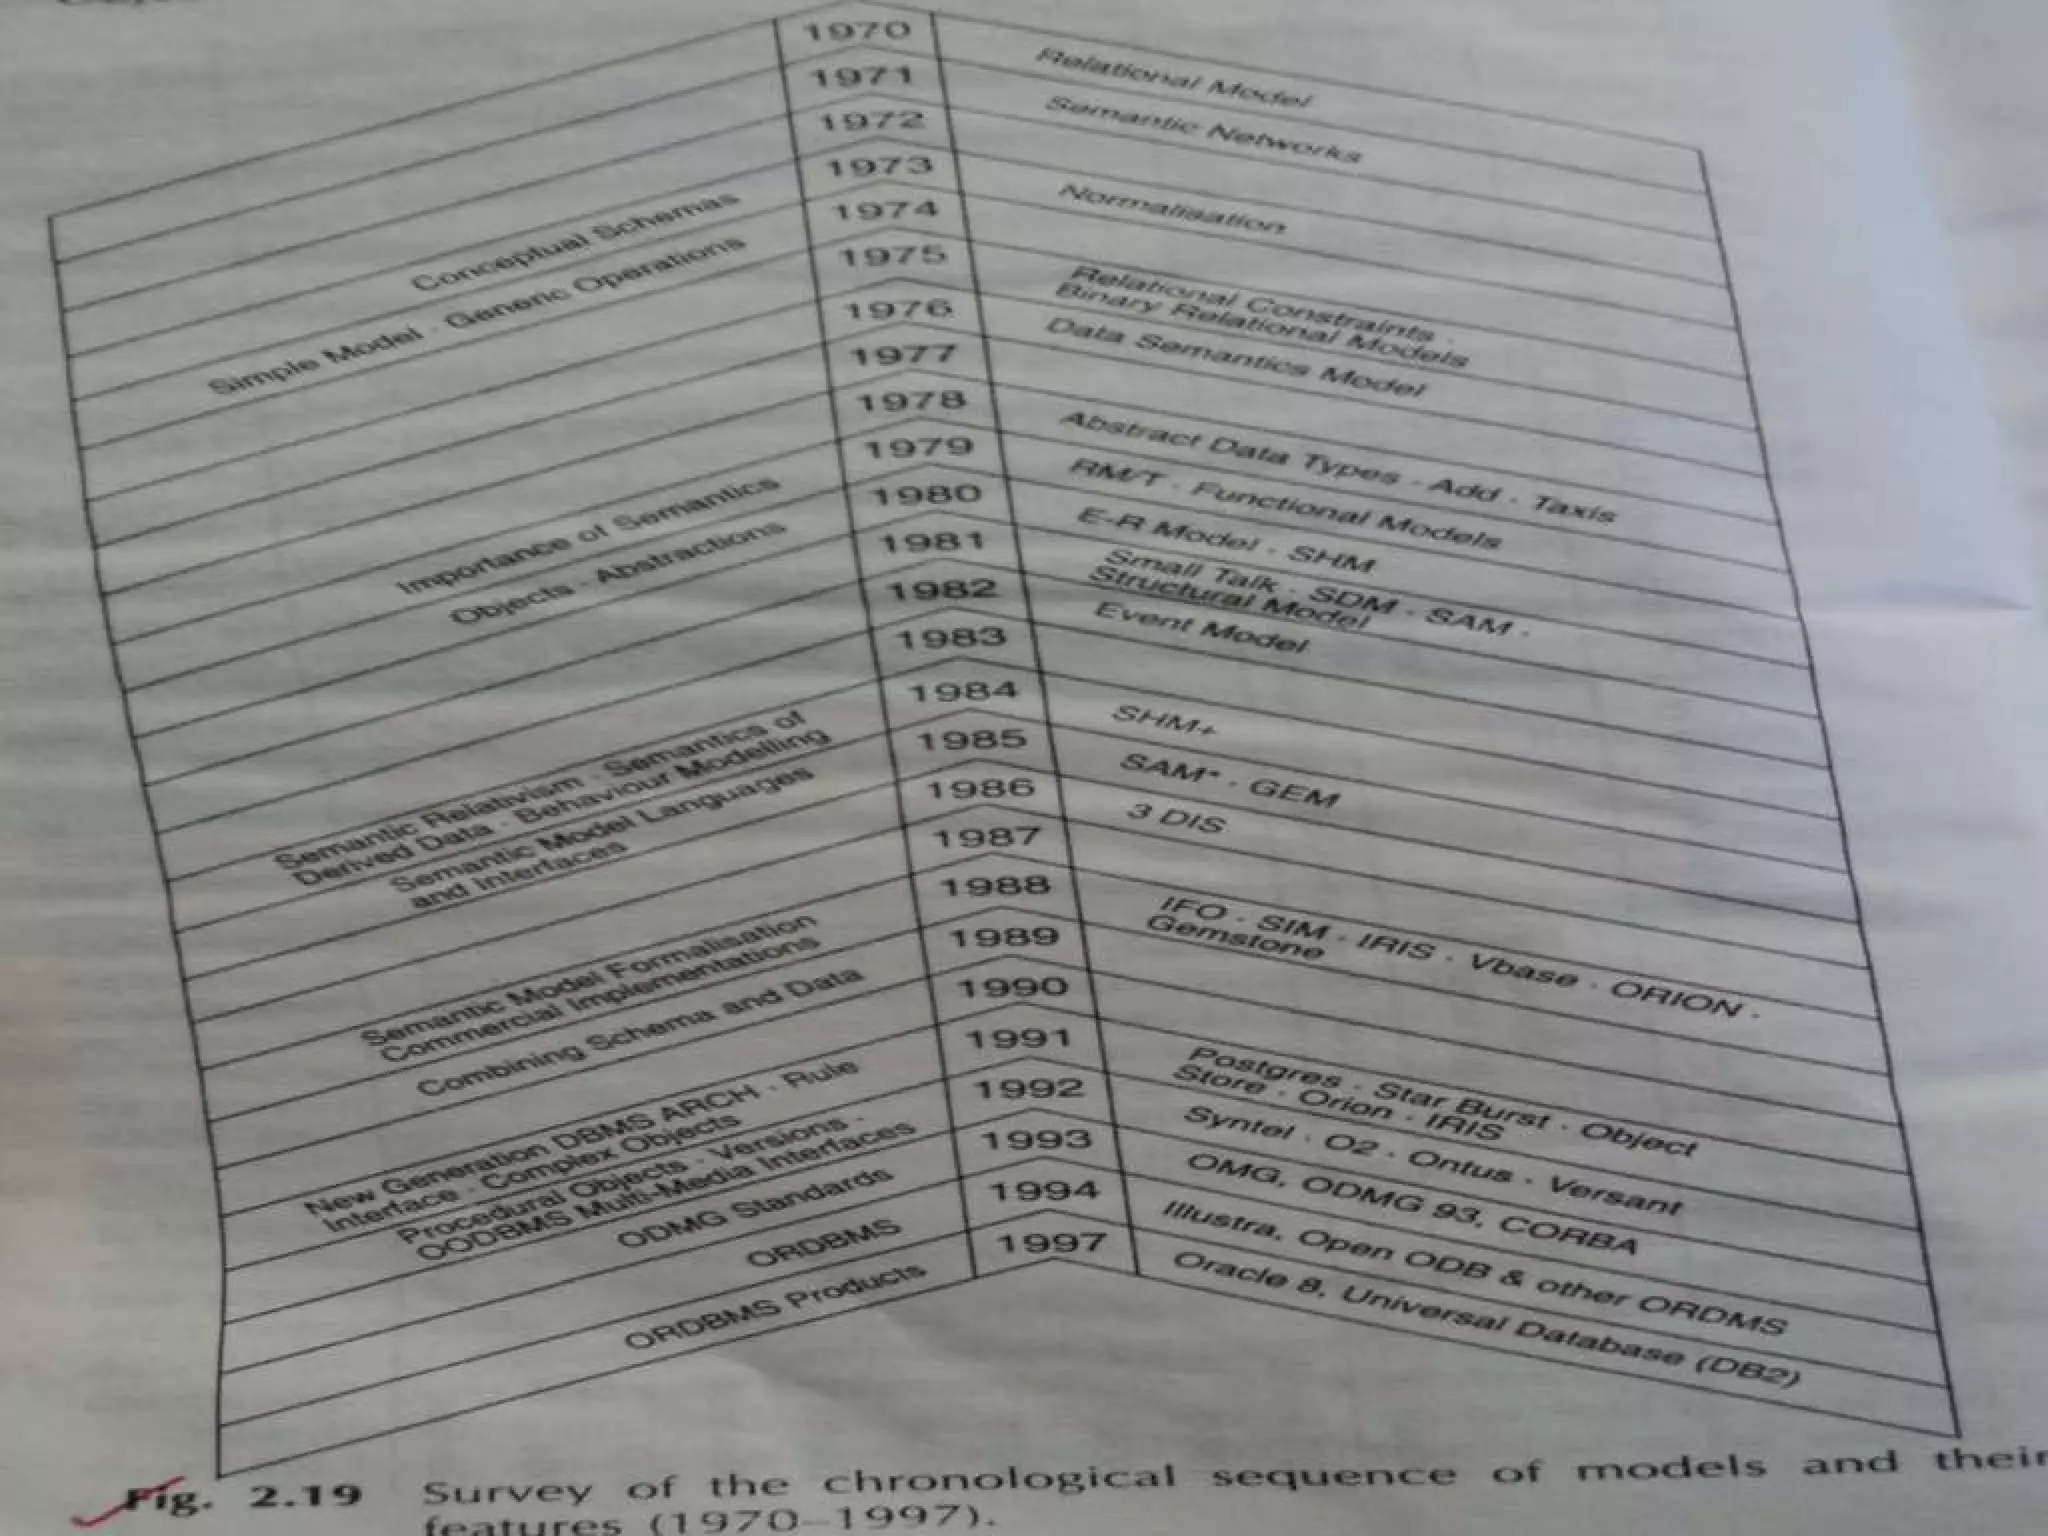 1970 Relational Model
1971 Semantic Networks
1972
Conceptual Schemas 1973 Normalisation
Simple Model · Generic Operations 1974
1975 Relational Constraints ·
Binary Relational Models
1976 Data Semantics Model
1977
1978 Abstract Data Types · Add · Taxis
Importance of Semantics 1979 RM/T · Functional Models
Objects · Abstractions 1980 E-R Model · SHM
1981 Small Talk · SDM · SAM ·
Structural Model
1982 Event Model
1983
Semantic Relativism · Semantics of 1984 SHM+
Derived Data · Behaviour Modelling
Semantic Model Languages 1985 SAM* · GEM
and Interfaces
1986 3 DIS
1987
Semantic Model Formalisation 1988 IFO · SIM · IRIS · Vbase · ORION ·
Commercial Implementations Gemstone
Combining Schema and Data 1989
1990
New Generation DBMS ARCH · Rule 1991 Postgres · Star Burst · Object
Interface · Complex Objects Store · Orion · IRIS
Procedural Objects · Versions · 1992 Syntel · O2 · Ontus · Versant
OODBMS Multi-Media Interfaces
ODMG Standards 1993 OMG, ODMG 93, CORBA
ORDBMS 1994 Illustra, Open ODB & other ORDMS
ORDBMS Products 1997 Oracle 8, Universal Database (DB2)
Fig. 2.19 Survey of the chronological sequence of models and their
features (1970–1997).